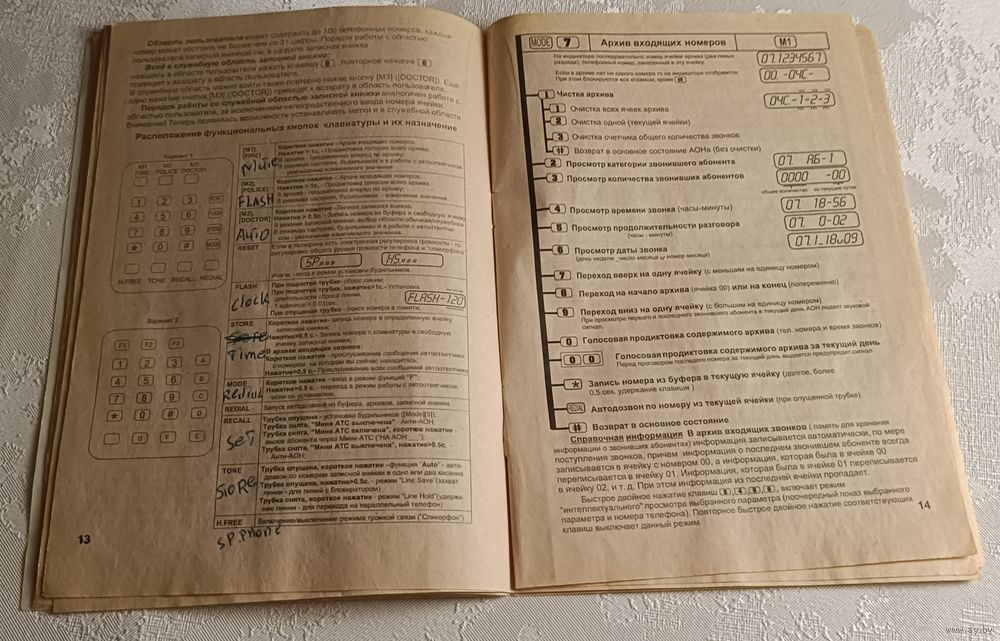 Область пользователя может содержать до 100 телефонных номеров, каждый
номер может состоять не более чем из 31 цифры. Порядок работы с областью
пользователя записной книжки см. в разделе записная книжка.
Вход в служебную область записной книжки:
находясь в области пользователя нажать клавишу 8, повторное нажатие 8
приведет к возврату в область пользователя.
В служебную область можно войти также повторно нажав кнопку [M3] ([DOCTOR]). Еще
одно нажатие кнопки [M3] ([DOCTOR]) приведет к возврату в область пользователя.
Порядок работы со служебной областью записной книжки аналогичен работе с
областью пользователя, за исключением непосредственного ввода номера ячейки.
Внимание! Теперь появилась возможность устанавливать метки и в служебной области.
Расположение функциональных кнопок клавиатуры и их назначение
Вариант 1
M1 M2 M3
FIRE POLICE DOCTOR
1 2 3
4 5 6
7 8 9
* 0 #
MODE
H.FREE TONE RECALL REDIAL
Вариант 2
F1 F2 F3
1 2 3 A
4 5 6 B
7 8 9 C
* 0 # D
[M1], [FIRE]
Mute
Короткое нажатие - Архив входящих номеров.
Нажатие > 1с. - Продиктовка голосом всего архива.
В архиве - продвижение вперед по архиву;
[M2], [POLICE]
FLASH
Короткое нажатие - Архив исходящих номеров.
Нажатие > 1с. - Продиктовка голосом всего архива.
В архиве - продвижение вперед по архиву;
В режимах настроек, будильниках - изменение значения.
[M3], [DOCTOR]
Auto
Короткое нажатие - Личная записная книжка.
Нажатие > 0.5с. - Запись номера из буфера в свободную ячейку
RESET
Если в телефоне есть электронная регулировка громкости - то
регулировка общего уровня громкости телефона и "спикерфона"
Иначе - вход в режим установки будильников.
FLASH
clock
При поднятой трубке - сброс линии.
При поднятой трубке, нажатие>1с.- Установка
длительности сброса линии,
1 единица = 0.01сек.
При опущенной трубке - поиск номера в памяти;
FLASH-120
STORE
Time
Короткое нажатие- запись номера в определенную ячейку
записной книжки;
Нажатие>0.5 с.- Запись номера с клавиатуры в свободную
ячейку записной книжки;
В архиве входящих звонков:
Короткое нажатие - прослушивание сообщения автоответчика
с номером, на котором вы сейчас находитесь;
Нажатие>0,5 с.- Прослушивание всех сообщений автоответчика
MODE
Короткое нажатие - вход в режим функций "F".
Нажатие>0.5 с. - переход в режим работы с автоответчиком,
если он установлен.
REDIAL
Запуск автодозвона из буфера, архивов, записной книжки.
RECALL
Set
Трубка опущена - установка будильников ([Mode][5]);
Трубка снята, "Мини АТС выключена" - Анти-АОН;
Трубка снята, "Мини АТС включена", короткое нажатие -
вызов абонента через Мини-АТС ("НА АОН _ _");
Трубка снята, "Мини АТС выключена", нажатие>0.5с. -
- Анти-АОН;
TONE
Store
Трубка опущена, короткое нажатие - функция "Auto" - авто-
дозвон по номерам записной книжки в одно или два касания.
Трубка опущена, нажатие>0.5с. - режим "Line Save"(захват
линии - для линий с блокиратором)
Трубка снята, короткое нажатие - режим "Line Hold"(удержа-
ние линии - для перехода на параллельный телефон)
H.FREE
Включение/выключение режима громкой связи ("Спикерфон")
SP.PHONE
13
MODE 7 Архив входящих номеров M1
На индикаторе последовательно номер ячейки архива (два левых
разряда), телефонный номер, занесенный в эту ячейку.
07.1234567
Если в архиве нет ни одного номера то на индикаторе отобразится:
При этом блокируются все клавиши, кроме
00. -04C-
1 Чистка архива
04C-1-2-3
1 Очистка всех ячеек архива
2 Очистка одной (текущей ячейки)
3 Очистка счетчика общего количества звонков
# Возврат в основное состояние АОНа (без очистки)
2 Просмотр категории звонившего абонента
07. АБ-1
3 Просмотр количества звонивших абонентов
0000 -00
общее количество за текущие сутки
4 Просмотр времени звонка (часы-минуты)
07. 18-56
5 Просмотр продолжительности разговора
(часы - минуты)
07. 0-02
6 Просмотр даты звонка
(день недели _число месяца ∪ номер месяца)
07.1_18∪09
7 Переход вверх на одну ячейку (с меньшим на единицу номером)
8 Переход на начало архива (ячейка 00) или на конец (попеременно)
9 Переход вниз на одну ячейку (с большим на единицу номером)
При просмотре первого и последнего звонившего абонента в текущий день АОН подает звуковой
сигнал.
0 Голосовая продиктовка содержимого архива (тел. номера и время звонков)
0 0 Голосовая продиктовка содержимого архива за текущий день
Перед проговором последнего номера за текущий день выдается предупредит.сигнал
* Запись номера из буфера в текущую ячейку (долгое, более
0,5 сек. удержание клавиши )
REDIAL Автодозвон по номеру из текущей ячейки (при опущенной трубке)
# Возврат в основное состояние
Справочная информация В архив входящих звонков ( память для хранения
информации о звонивших абонентах) информация записывается автоматически, по мере
поступления звонков, причем информация о последнем звонившем абоненте всегда
записывается в ячейку с номером 00, а информация, которая была в ячейке 00
переписывается в ячейку 01. Информация, которая была в ячейке 01 переписывается
в ячейку 02, и т. д. При этом информация из последней ячейки пропадает.
Быстрое двойное нажатие клавиш 3, 4, 5, 6, включает режим
"интеллектуального" просмотра выбранного параметра (поочередный показ выбранного
параметра и номера телефона). Повторное быстрое двойное нажатие соответствующих
клавиш выключает данный режим.
14
www.ay.by